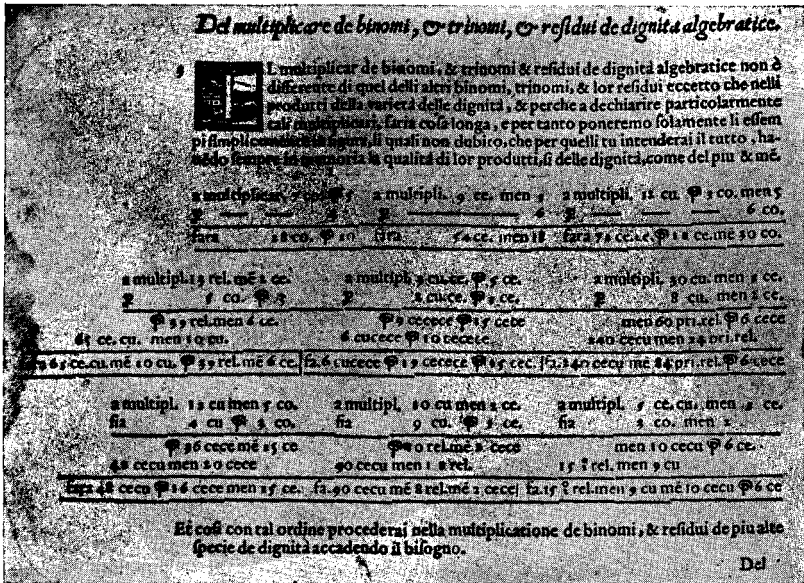 Del multiplicare de binomi, & trinomi, & residui de dignita algebratice.
9 L multiplicar de binomi, & trinomi & residui de dignita algebratice non è
differente di quel delli altri binomi, trinomi, & lor residui eccetto che nelli
produtti della varietà delle dignita, & perche a dechiarire particolarmente
tali multiplicari, saria cosa longa, e per tanto poneremo solamente li essem
pi simplicemente in figura, li quali non dubito, che per quelli tu intenderai il tutto, ha-
uēdo sempre in memoria la qualità di lor produtti, si delle dignita, come del piu & mē.
a multiplicar 5 a multipli. 9 ce. men 3 a multipli. 12 cu. ꝑ 3 co. men 5
ꝑ 4 ꝑ 6 ꝑ 6 co.
fara 28 co. ꝑ 20 fara 54 ce. men 18 fara 72 ce.ce. ꝑ 18 ce. mē 30 co.
a multipl. 13 rel. mē 2 ce. a multipli. 3 cu.ce. ꝑ 5 ce. a multipli. 30 cu. men 3 ce.
ꝑ 5 co. ꝑ 3 ꝑ 2 cu.ce. ꝑ 3 ce. ꝑ 8 cu. men 2 ce.
ꝑ 39 rel. men 6 ce. ꝑ 9 cecece ꝑ 15 cece men 60 pri.rel. ꝑ 6 cece
65 ce. cu. men 10 cu. 6 cucece ꝑ 10 cecece. 240 cecu men 24 pri. rel.
65 ce.cu. mē 10 cu. ꝑ 39 rel. mē 6 ce. fa. 6 cucece ꝑ 19 cecece ꝑ 15 cec. fa. 240 cecu mē 84 pri.rel. ꝑ 6 cece
a multipl. 12 cu men 5 co. a multipl. 10 cu men 2 ce. a multipl. 5 ce. cu. men 3 ce.
fia 4 cu ꝑ 3 co. fia 9 cu. ꝑ 1 ce. fia 3 co. men 2
ꝑ 36 cece mē 15 ce ꝑ 10 rel. mē 2 cece men 10 cecu ꝑ 6 ce.
48 cecu men 20 cece 90 cecu men 18 rel. 15 2̄ rel. men 9 cu
fara 48 cecu ꝑ 16 cece men 15 ce. fa. 90 cecu mē 8 rel. mē 2 cece fa. 15 2̄ rel. men 9 cu mē 10 cecu ꝑ 6 ce
Et cosi con tal ordine procederai nella multiplicatione de binomi, & residui de piu alte
specie de dignita accadendo il bisogno.
Del